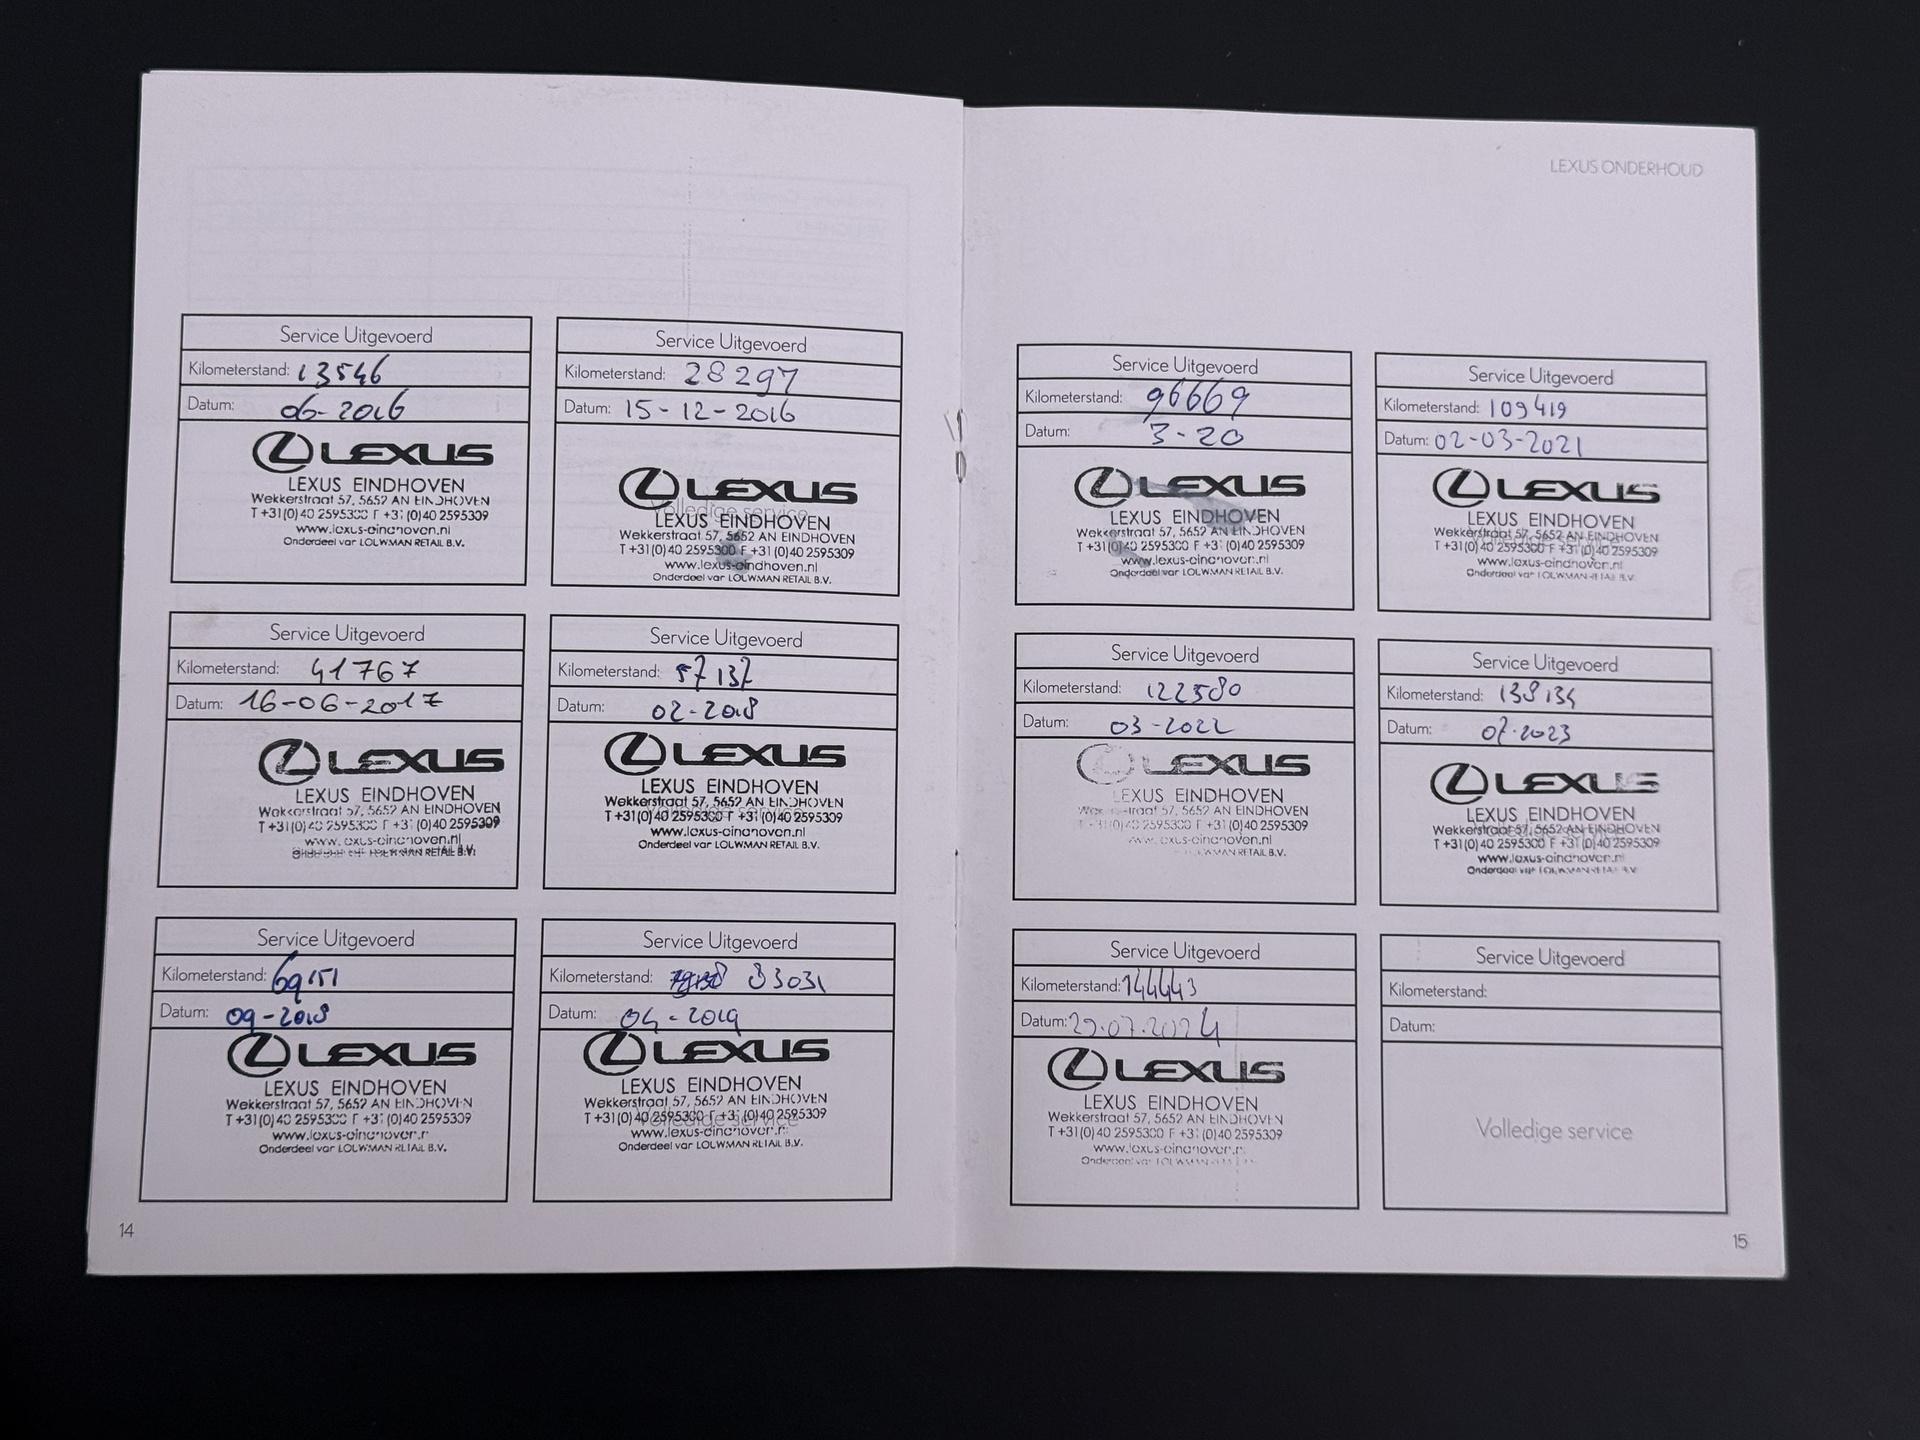 LEXUS ONDERHOUD
Service Uitgevoerd
Kilometerstand: 13546
Datum: 06-2016
LEXUS
LEXUS EINDHOVEN
Wekkerstraat 57, 5652 AN EINDHOVEN
T +31(0)40 2595300 F +31(0)40 2595309
www.lexus-eindhoven.nl
Onderdeel van LOUWMAN RETAIL B.V.
Service Uitgevoerd
Kilometerstand: 28297
Datum: 15-12-2016
LEXUS
Volledige service
LEXUS EINDHOVEN
Wekkerstraat 57, 5652 AN EINDHOVEN
T +31(0)40 2595300 F +31(0)40 2595309
www.lexus-eindhoven.nl
Onderdeel van LOUWMAN RETAIL B.V.
Service Uitgevoerd
Kilometerstand: 41767
Datum: 16-06-2017
LEXUS
LEXUS EINDHOVEN
Wekkerstraat 57, 5652 AN EINDHOVEN
T +31(0)40 2595300 F +31(0)40 2595309
www.lexus-eindhoven.nl
Onderdeel van LOUWMAN RETAIL B.V.
Service Uitgevoerd
Kilometerstand: 57137
Datum: 02-2018
LEXUS
LEXUS EINDHOVEN
Wekkerstraat 57, 5652 AN EINDHOVEN
Volledige service
T +31(0)40 2595300 F +31(0)40 2595309
www.lexus-eindhoven.nl
Onderdeel van LOUWMAN RETAIL B.V.
Service Uitgevoerd
Kilometerstand: 69151
Datum: 09-2018
LEXUS
LEXUS EINDHOVEN
Wekkerstraat 57, 5652 AN EINDHOVEN
T +31(0)40 2595300 F +31(0)40 2595309
www.lexus-eindhoven.nl
Onderdeel van LOUWMAN RETAIL B.V.
Service Uitgevoerd
Kilometerstand: 83031
Datum: 04-2019
LEXUS
LEXUS EINDHOVEN
Wekkerstraat 57, 5652 AN EINDHOVEN
T +31(0)40 2595300 F +31(0)40 2595309
Volledige service
www.lexus-eindhoven.nl
Onderdeel van LOUWMAN RETAIL B.V.
14
Service Uitgevoerd
Kilometerstand: 96669
Datum: 3-20
LEXUS
LEXUS EINDHOVEN
Wekkerstraat 57, 5652 AN EINDHOVEN
T +31(0)40 2595300 F +31(0)40 2595309
www.lexus-eindhoven.nl
Onderdeel van LOUWMAN RETAIL B.V.
Service Uitgevoerd
Kilometerstand: 109419
Datum: 02-03-2021
LEXUS
LEXUS EINDHOVEN
Wekkerstraat 57, 5652 AN EINDHOVEN
Volledige service
T +31(0)40 2595300 F +31(0)40 2595309
www.lexus-eindhoven.nl
Onderdeel van LOUWMAN RETAIL B.V.
Service Uitgevoerd
Kilometerstand: 122580
Datum: 03-2022
LEXUS
LEXUS EINDHOVEN
Wekkerstraat 57, 5652 AN EINDHOVEN
T +31(0)40 2595300 F +31(0)40 2595309
www.lexus-eindhoven.nl
LOUWMAN RETAIL B.V.
Service Uitgevoerd
Kilometerstand: 138134
Datum: 07-2023
LEXUS
LEXUS EINDHOVEN
Wekkerstraat 57, 5652 AN EINDHOVEN
Volledige service
T +31(0)40 2595300 F +31(0)40 2595309
www.lexus-eindhoven.nl
Onderdeel van LOUWMAN RETAIL B.V.
Service Uitgevoerd
Kilometerstand: 144443
Datum: 29.07.2024
LEXUS
LEXUS EINDHOVEN
Wekkerstraat 57, 5652 AN EINDHOVEN
T +31(0)40 2595300 F +31(0)40 2595309
www.lexus-eindhoven.nl
Onderdeel van LOUWMAN
Service Uitgevoerd
Kilometerstand:
Datum:
Volledige service
15